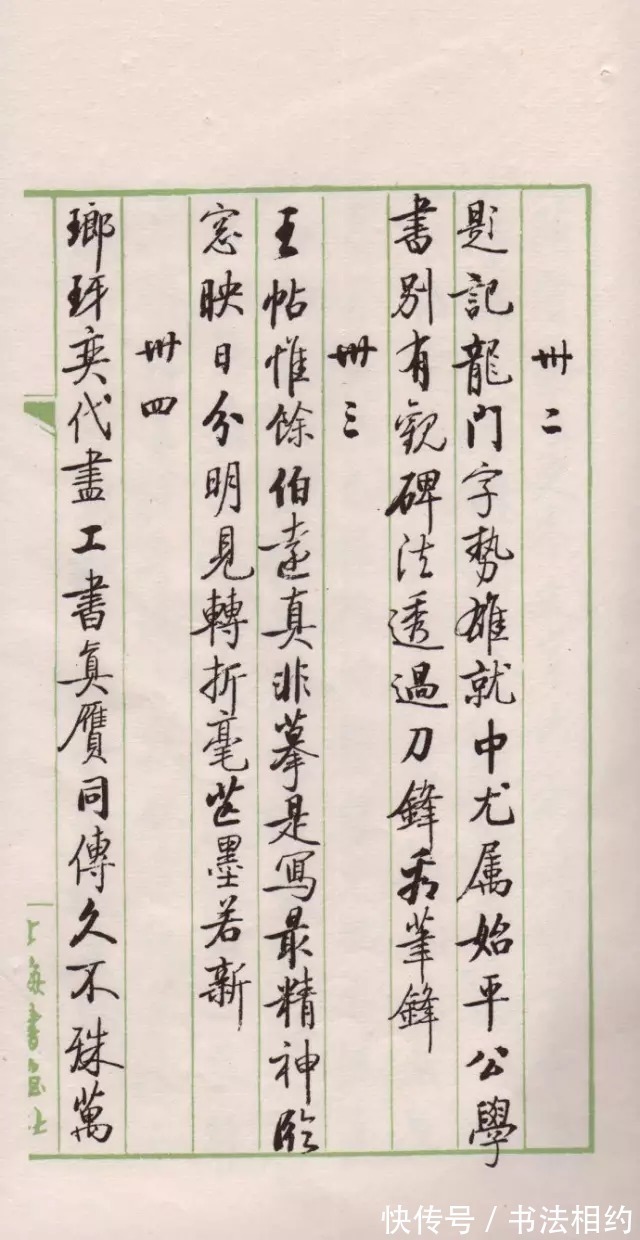 卅二
題記龍門字勢雄就中尤属始平公學
書別有觀碑法透過刀鋒看筆鋒
卅三
王帖惟餘伯遠真非摹是寫最精神臨
窓映日分明見轉折毫芒墨若新
卅四
瑯玡奕代盡工書真贋同傳久不殊萬
上海書畫社
快传号/书法相约